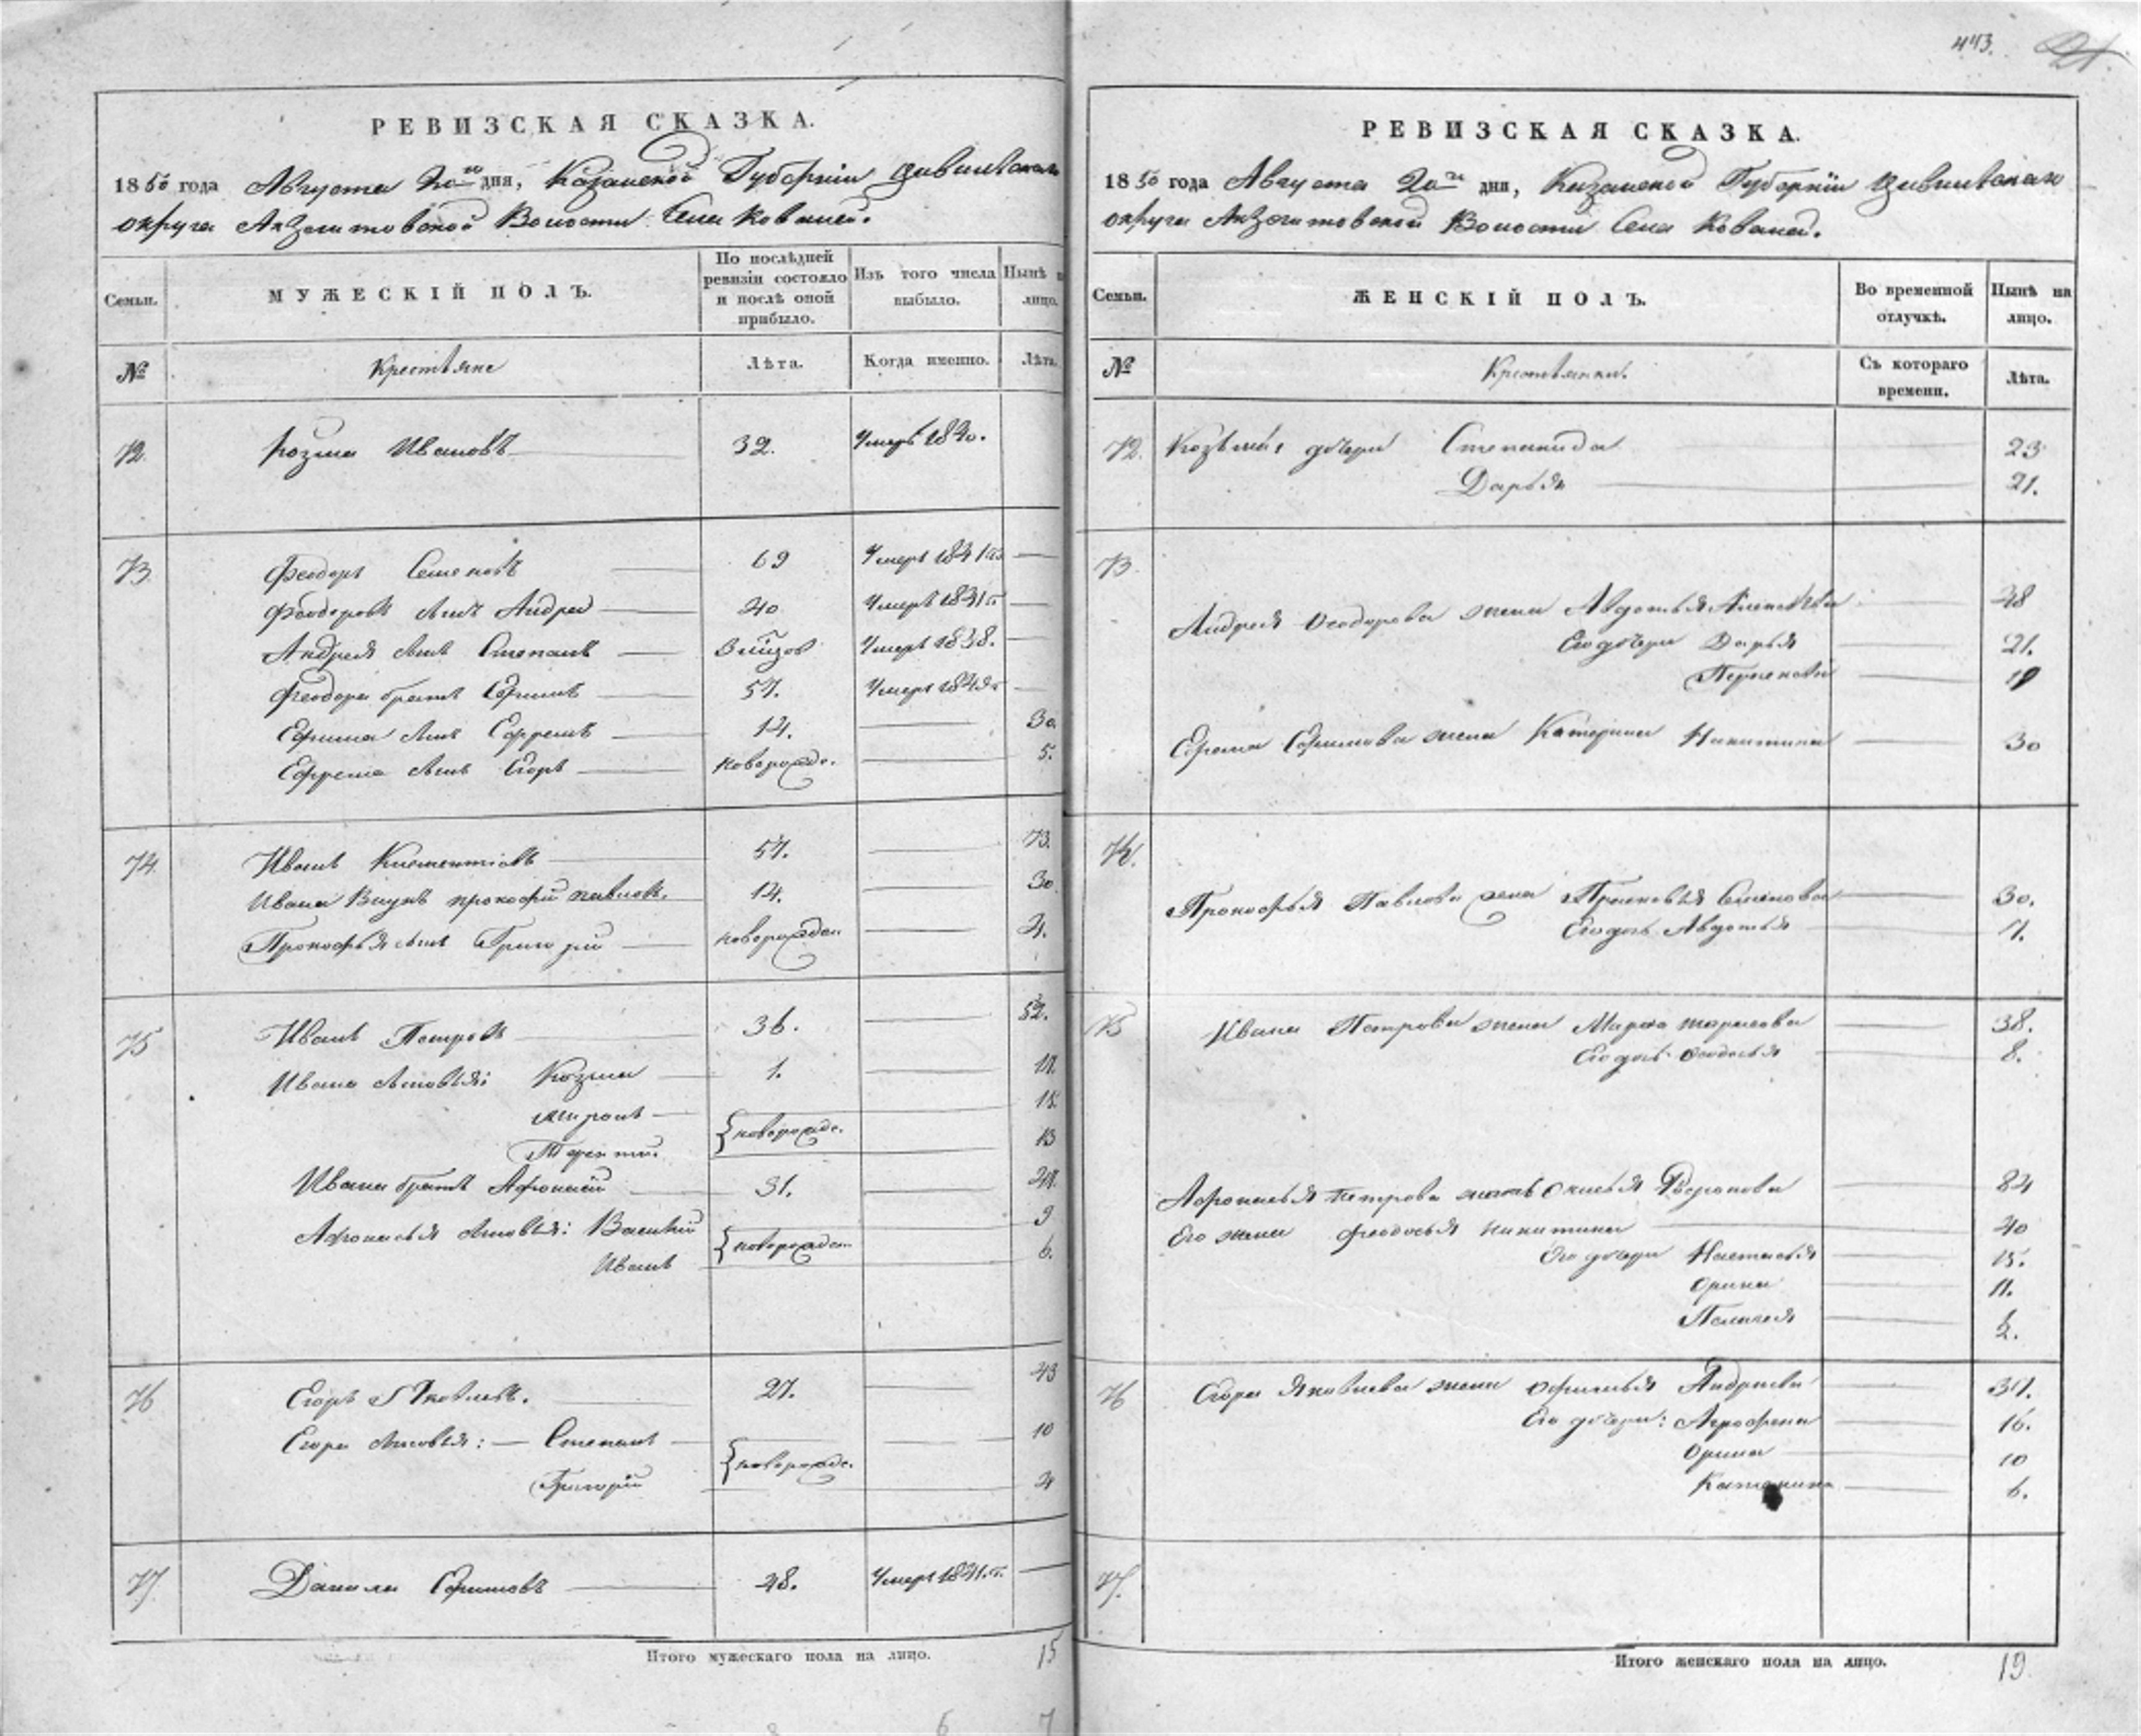 443.
РЕВИЗСКАЯ СКАЗКА.
1850 года Августа 20го дня, Казанской Губерніи Цивильскаго
округа Акзегитовской Волости Села Ковалей.
Семьи.
МУЖЕСКІЙ ПОЛЪ.
По послѣдней ревизіи состояло и послѣ оной прибыло.
Изъ того числа выбыло.
Нынѣ на лицо.
№
Крестьяне
Лѣта.
Когда именно.
Лѣта.
72. Козма Ивановъ 32. Умеръ 1840.
73 Феодоръ Семеновъ 69 Умеръ 1841го
Феодоровъ сынъ Андрей 40 Умеръ 1841го
Андрея сынъ Степанъ Умеръ 1838.
Феодора братъ Ефимъ 57. Умеръ 1849го
Ефима сынъ Ефремъ 14. 30.
Ефрема сынъ Егоръ новорожде. 5.
74. Иванъ Климентіевъ 57. 73.
Ивана Внукъ прокофій павловъ. 14. 30.
Прокофья сынъ Григорій новорожден 4.
75 Иванъ Петровъ 36. 52.
Ивана сыновья: Козма 1. 17.
миронъ 15.
Терентій. {новорожде. 13
Ивана братъ Афонасій 31. 47.
Афонасья сыновья: Василій 9
Иванъ {новорожден 6.
76 Егоръ Яковлевъ. 27. 43
Егора сыновья: Степанъ 10
Григорій {новорожде. 4
77. Данила Ефимовъ 48. Умеръ 1841.го
Итого мужескаго пола на лицо. 15
6 7
РЕВИЗСКАЯ СКАЗКА.
1850 года Августа 20го дня, Казанской Губерніи Цивильскаго
округа Акзегитовской Волости Села Ковалей.
Семьи.
ЖЕНСКІЙ ПОЛЪ.
Во временной отлучкѣ.
Нынѣ на лицо.
№
Крестьянки.
Съ котораго времени.
Лѣта.
72. Козьмы дочери Степанида 23
Дарья 21.
73. Андрея Феодорова жена Авдотья Алексѣева 48
Его дочери Дарья 21.
Прасковья 19
Ефрема Ефимова жена Катерина Никитина 30
74. Прокофья Павлова жена Прасковья Семенова 30.
Его дочь Авдотья 7.
75 Ивана Петрова жена Марфа тарасова 38.
Его дочь Феодосья 8.
Афонасья петрова мать 84
Его жена феодосья никитина 40
Его дочери Настасья 15.
Орина 11.
Пелагея 2.
76 Егора Яковлева жена Офимья Андреева 37.
Его дочери: Аграфена 16.
Орина 10
Катерина 6.
77.
Итого женскаго пола на лицо. 19